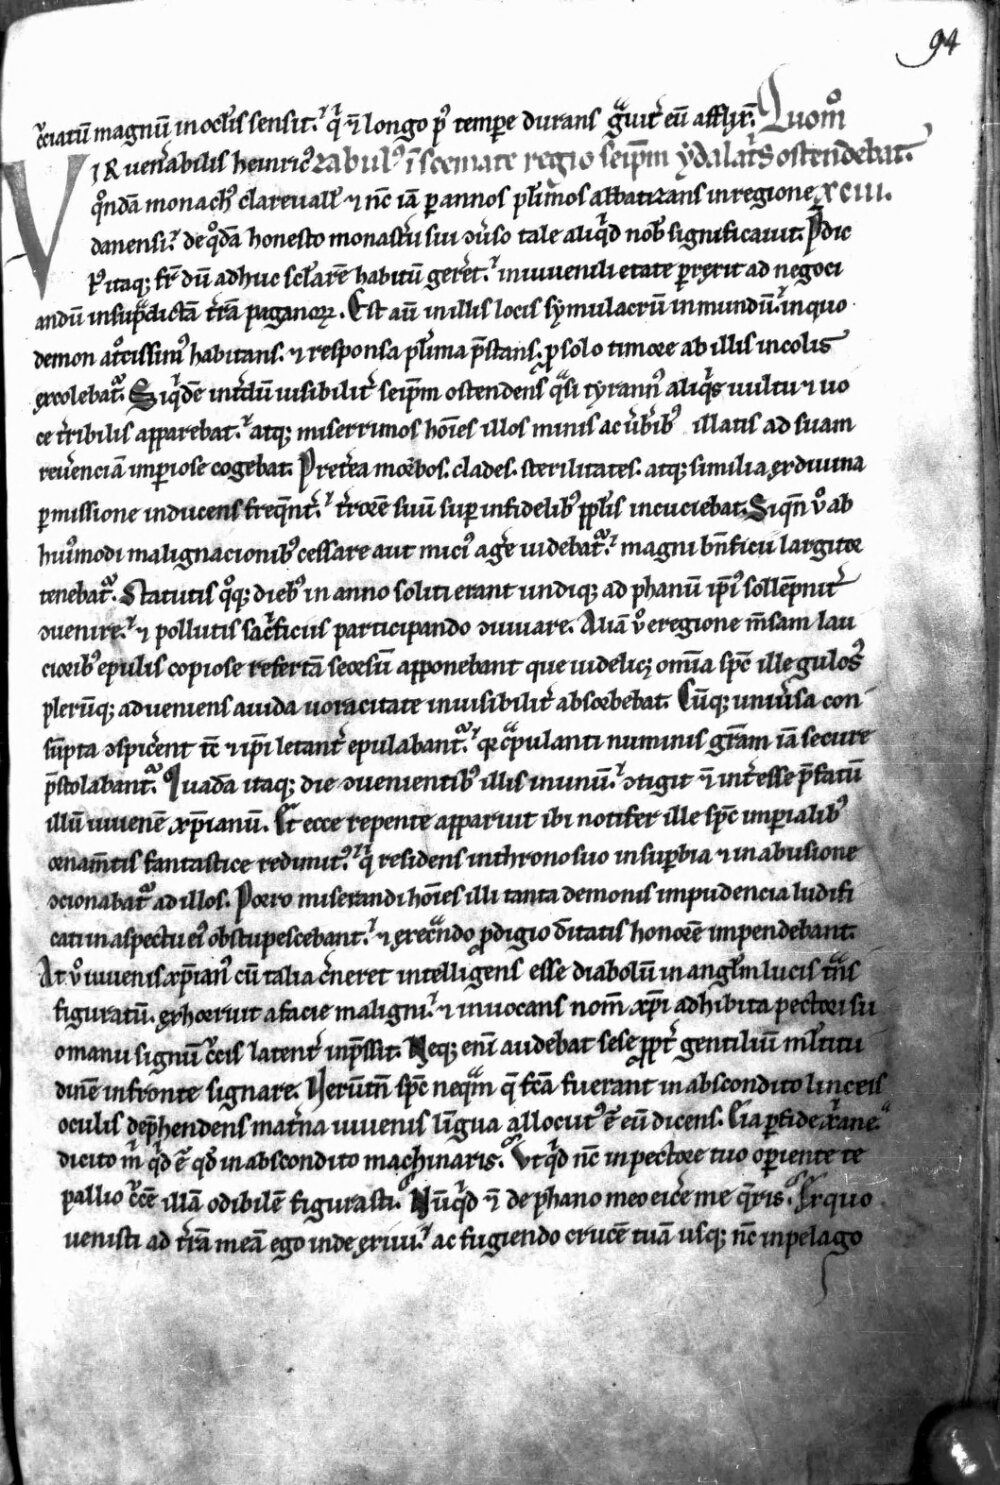 94
c̉ciatū magnū in oclis sensit. q̇ ⁊ n̄ longo p᷒ tempore durans g̃uit̉ eū afflix̄. Quom̊
VIR ven̉abilis heinric᷒ zabul᷒ ī scemate regio seip̄m ydalat̉s ostendebat.
q̊ndā monach᷒ clareuall̉ ⁊ nc̄ iā ꝑ annos pl̉imos abbatizans in regione xciii.
danensi. de q̊dā honesto monast̉ii sui ꝯủso tale aliq̇d nob̉ significauit. P̉dic
t᷒ itaq; fr̄ dū adhuc scl̉arē habitū geret̉. in iuuenili etate ꝑrexit ad negoci
andū in sup̉dictā t̉rā paganoꝝ. Est aū in illis locis symulacrū inmundū. in quo
demon at̊cissim᷒ habitans. ⁊ responsa pl̉ima p̄stans. ꝓ solo timore ab illis incolis
excolebat᷑. Siq̇dē int̉dū uisibilit̉ seip̄m ostendens q̃si tyrann᷒ aliq̇s uultu ⁊ uo
ce t̉ribilis apparebat. atq; miserrimos ho͞ies illos minis ac ủb̉ib᷒ illatis ad suam
reủenciā imꝑiose cogebat. Pret̉ea morbos. clades. sterilitates. atq; similia ex diuina
ꝑmissione inducens freq̄nt̉. t̉rorē suū suꝑ infidelib᷒ ppl̉is incuciebat. Si qn̄ ů ab
hui᷒modi malignacionib᷒ cessare aut mici᷒ ag̉e uidebat᷑. magni bn̄ficii largitor
tenebat᷑. Statutis q̊q; dieb᷒ in anno soliti erant undiq; ad phanū ip̄i᷒ sollēpnit̉
ꝯuenire. ⁊ pollutis sac̉ficiis participando ꝯuiuare. Aliā ů e regione m̄sam lau
ciorib᷒ epulis copiose refertā seorsū apponebant que uidelic; om̄ia spc̄ ille gulos᷒
plerūq; adueniens auida uoracitate inuisibilit̉ absorbebat. Cūq; uniủsa con
sūpta ꝯspic̉ent tc̄ ⁊ ip̄i letant̉ epulabant᷑. ⁊ c̃pulanti numinis gr̄am iā secure
p̄stolabant᷑. Quadā itaq; die ꝯuenientib᷒ illis in unū. ꝯtigit ⁊ int̉esse p̄fatū
illū iuuenē xp̄ianū. Et ecce repente apparuit ibi notifer ille spc̄ imꝑialib᷒
ornam̄tis fantastice redimit᷒. q̇ residens in throno suo in suꝑbia ⁊ in abusione
ꝯcionabat᷑ ad illos. Porro miserandi ho͞ies illi tanta demonis impudencia ludifi
cati in aspectu ei᷒ obstupescebant. ⁊ execr̃ndo ꝓdigio d̄itatis honorē impendebant.
At ů iuuenis xp̄ian᷒ cū talia c̉neret intelligens esse diabolū in angl̄m lucis t̃ns
figuratū. exhorruit a facie maligni. ⁊ inuocans nom̄ xp̄i adhibita pectori su
o manu signū c̉cis latent̉ inp̄ssit. Neq; eni̅ audebat sese ꝓpt̉ gentiliū ml̉titu
dinē in fronte signare. Uerūtn̄ spc̄ neq̃m q̄ fc̄a fuerant in abscondito linceis
oculis dep̄hendens mat̉na iuuenis li̅gua allocut᷒ ē eū dicens. Eia ꝑfide xp̄iane.
dicito m̉ q̇d ē qd̉ in abscondito machinaris. Vt q̇d nc̄ in pectore tuo oꝑiente te
pallio c̉cē illā odibilē figurasti. Nūq̇d ⁊ de phano meo eic̉e me q̄ris. Ex quo
uenisti ad t̉rā meā ego inde exiui. ac fugiendo crucē tuā usq; nc̄ in pelago